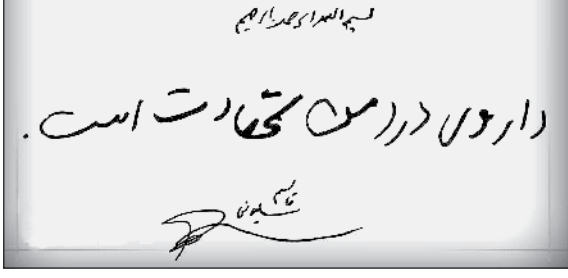 بسم الله الرحمن الرحیم
داروی درد من شهادت است.
قاسم
سلیمانی